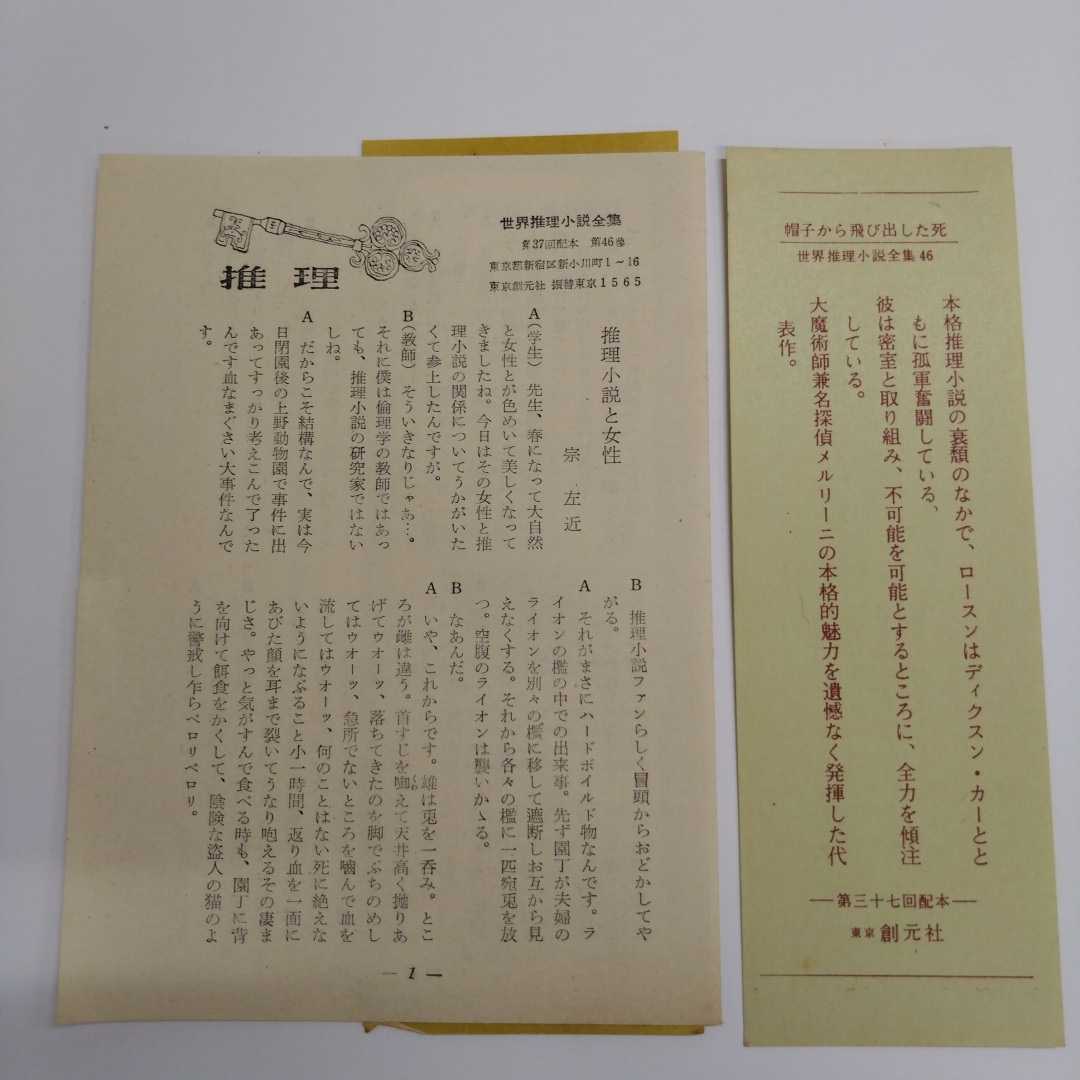 推理
世界推理小説全集
第37回配本 第46巻
東京都新宿区新小川町1~16
東京創元社 振替東京1565
推理小説と女性
宗左近
A(学生) 先生、春になって大自然
と女性とが色めいて美しくなって
きましたね。今日はその女性と推
理小説の関係についてうかがいた
くて参上したんですが。
B(教師) そういきなりじゃあ…。
それに僕は倫理学の教師ではあっ
ても、推理小説の研究家ではない
しね。
A だからこそ結構なんで、実は今
日閉園後の上野動物園で事件に出
あってすっかり考えこんで了った
んです血なまぐさい大事件なんで
す。
B 推理小説ファンらしく冒頭からおどかしてや
がる。
A それがまさにハードボイルド物なんです。ラ
イオンの檻の中での出来事。先ず園丁が夫婦の
ライオンを別々の檻に移して遮断しお互から見
えなくする。それから各々の檻に一匹宛兎を放
つ。空腹のライオンは襲いかゝる。
B なあんだ。
A いや、これからです。雄は兎を一呑み。とこ
ろが雌は違う。首すじを啣えて天井高く拋りあ
げてウオーッ、落ちてきたのを脚でぶちのめし
てはウオーッ、急所でないところを嚙んで血を
流してはウオーッ、何のことはない死に絶えな
いようになぶること小一時間、返り血を一面に
あびた顔を耳まで裂いてうなり咆えるその凄ま
じさ。やっと気がすんで食べる時も、園丁に背
を向けて餌食をかくして、陰険な盗人の猫のよ
うに警戒し乍らペロリペロリ。
— 1 —
帽子から飛び出した死
世界推理小説全集46
本格推理小説の衰頽のなかで、ロースンはディクスン・カーとと
もに孤軍奮闘している、
彼は密室と取り組み、不可能を可能とするところに、全力を傾注
している。
大魔術師兼名探偵メルリーニの本格的魅力を遺憾なく発揮した代
表作。
—第三十七回配本—
東京 創元社